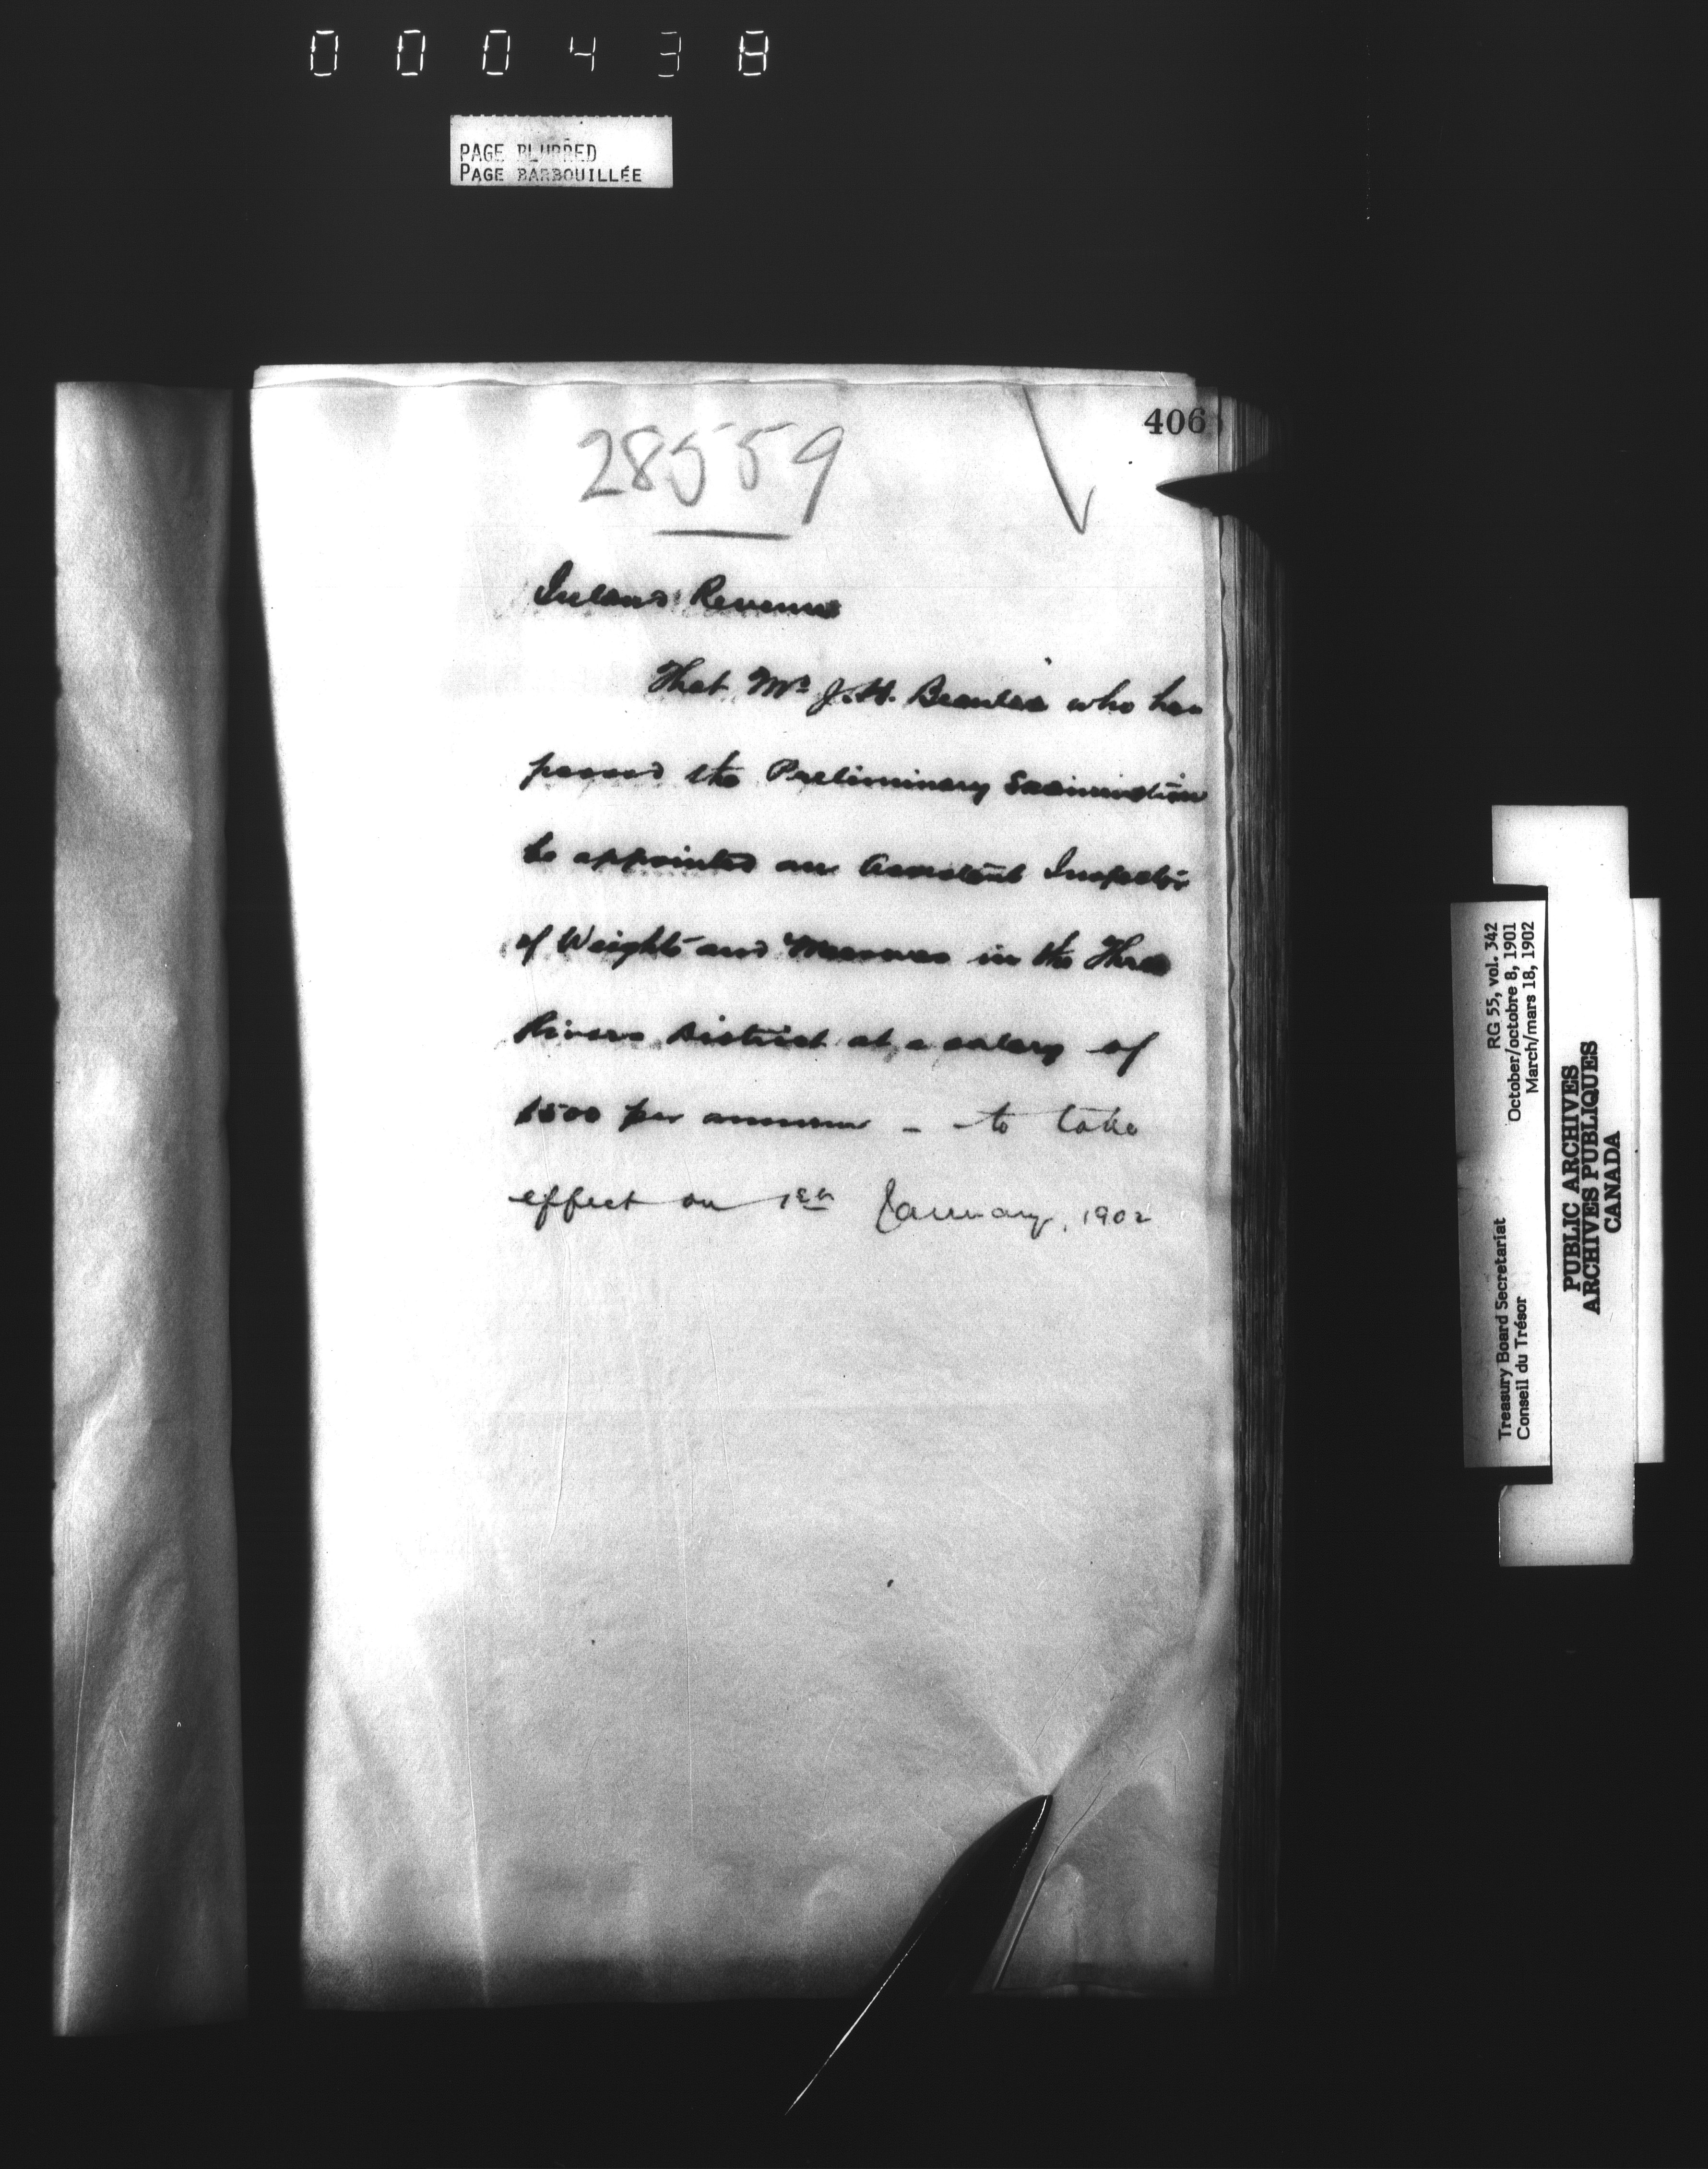 000438
PAGE BLURRED
PAGE BARBOUILLÉE
406
28559
Inland Revenue
That Mr J. H. who has
passed the Preliminary Examination
be appointed an Assistant Inspector
of Weights and Measures in the Three
Rivers District at a salary of
$500 per annum – to take
effect on 1st January, 1902
RG 55, vol. 342
October/octobre 8, 1901
March/mars 18, 1902
Treasury Board Secretariat
Conseil du Trésor
PUBLIC ARCHIVES
ARCHIVES PUBLIQUES
CANADA